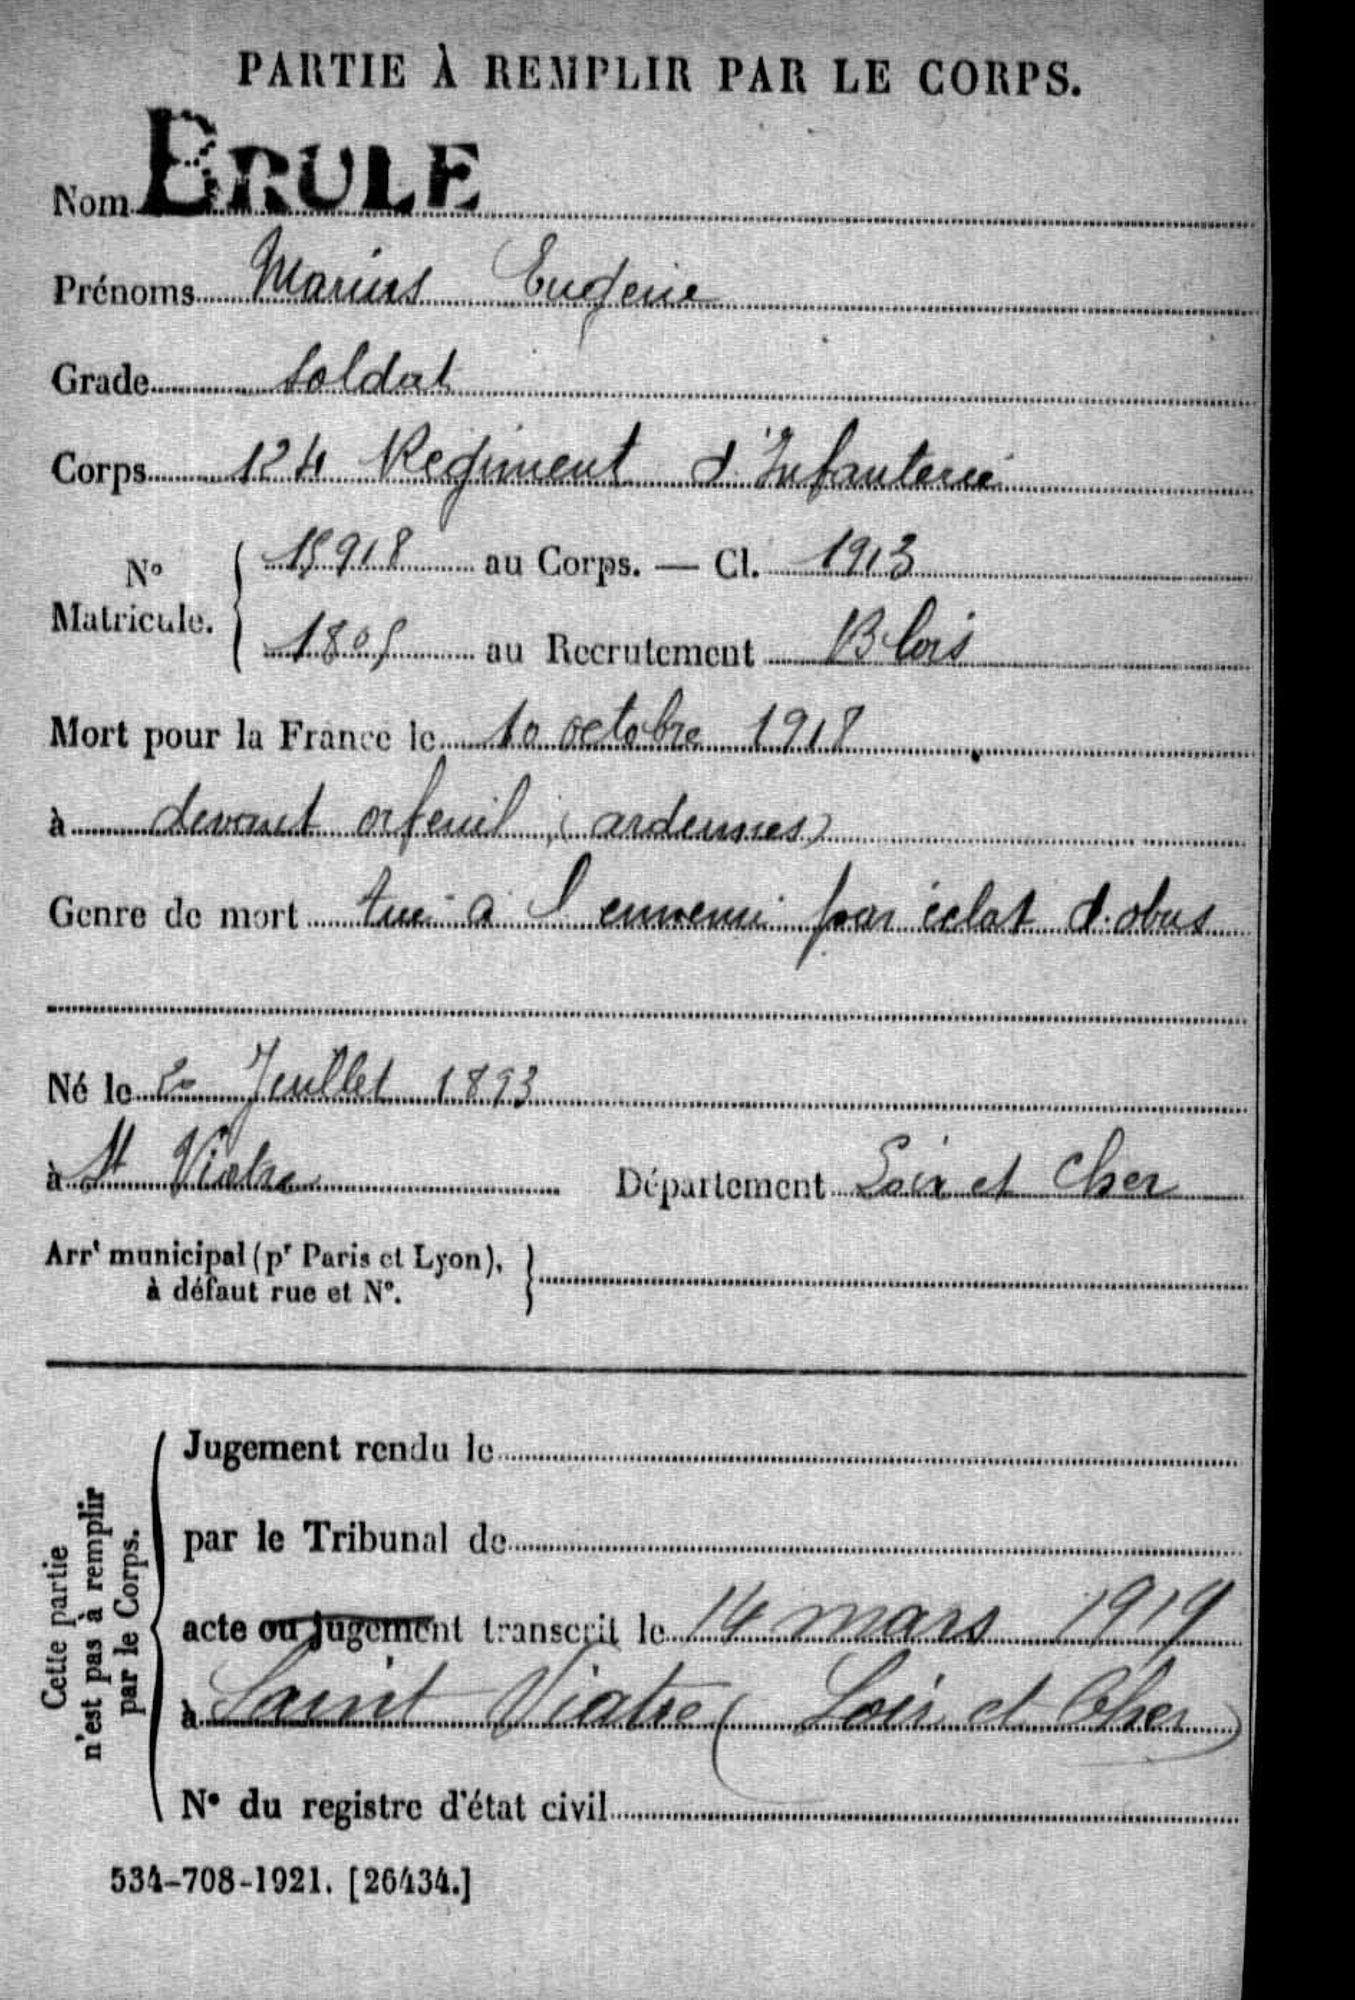 PARTIE À REMPLIR PAR LE CORPS.
Nom BRULE
Prénoms Marius Eugène
Grade Soldat
Corps 124 Régiment d'Infanterie
N° Matricule. 15918 au Corps. — Cl. 1913
1805 au Recrutement Blois
Mort pour la France le 10 octobre 1918
à devant orfeuil (ardennes)
Genre de mort tué à l'ennemi par éclat d'obus
Né le Juillet 1893
à St Viatre Département Loir et Cher
Arrt municipal (pr Paris et Lyon),
à défaut rue et N°.
Cette partie
n'est pas à remplir
par le Corps.
Jugement rendu le
par le Tribunal de
acte ou jugement transcrit le 14 mars 1919
à Saint Viatre (Loir et Cher)
N° du registre d'état civil
534-708-1921. [26434.]